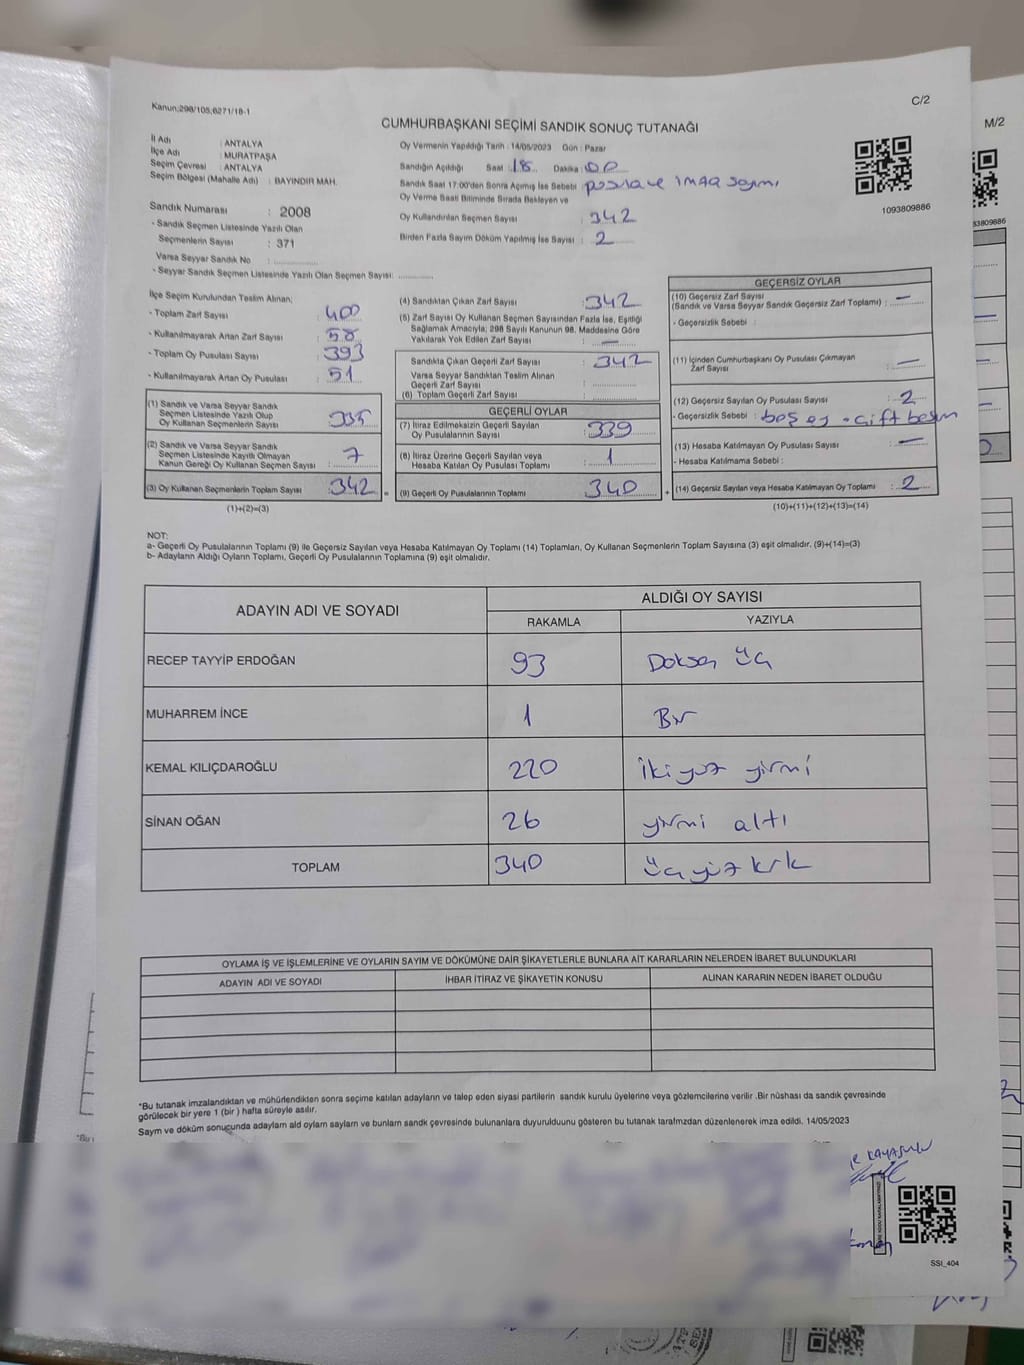 Kanun:298/105,6271/18-1
C/2
M/2
CUMHURBAŞKANI SEÇİMİ SANDIK SONUÇ TUTANAĞI
İl Adı : ANTALYA
İlçe Adı : MURATPAŞA
Seçim Çevresi : ANTALYA
Seçim Bölgesi (Mahalle Adı) : BAYINDIR MAH.
Oy Vermenin Yapıldığı Tarih : 14/05/2023 Gün : Pazar
Sandığın Açıldığı Saat : 18 Dakika : 00
Sandık Saat 17:00'den Sonra Açımış İse Sebebi : pusula ve imza sayımı
Oy Verme Saati Bitiminde Sırada Bekleyen ve
Oy Kullandırılan Seçmen Sayısı : 342
Birden Fazla Sayım Döküm Yapılmış İse Sayısı : 2
1093809886
53809886
Sandık Numarası : 2008
- Sandık Seçmen Listesinde Yazılı Olan
Seçmenlerin Sayısı : 371
Varsa Seyyar Sandık No :
- Seyyar Sandık Seçmen Listesinde Yazılı Olan Seçmen Sayısı:
İlçe Seçim Kurulundan Teslim Alınan;
- Toplam Zarf Sayısı : 400
- Kullanılmayarak Artan Zarf Sayısı : 58
- Toplam Oy Pusulası Sayısı : 393
- Kullanılmayarak Artan Oy Pusulası : 51
(1) Sandık ve Varsa Seyyar Sandık
Seçmen Listesinde Yazılı Olup
Oy Kullanan Seçmenlerin Sayısı : 335
(2) Sandık ve Varsa Seyyar Sandık
Seçmen Listesinde Kayıtlı Olmayan
Kanun Gereği Oy Kullanan Seçmen Sayısı : 7
(3) Oy Kullanan Seçmenlerin Toplam Sayısı : 342
(1)+(2)=(3)
(4) Sandıktan Çıkan Zarf Sayısı : 342
(5) Zarf Sayısı Oy Kullanan Seçmen Sayısından Fazla İse, Eşitliği
Sağlamak Amacıyla; 298 Sayılı Kanunun 98. Maddesine Göre
Yakılarak Yok Edilen Zarf Sayısı : —
Sandıkta Çıkan Geçerli Zarf Sayısı : 342
Varsa Seyyar Sandıktan Teslim Alınan
Geçerli Zarf Sayısı :
(6) Toplam Geçerli Zarf Sayısı :
GEÇERLİ OYLAR
(7) İtiraz Edilmeksizin Geçerli Sayılan
Oy Pusulalarının Sayısı : 339
(8) İtiraz Üzerine Geçerli Sayılan veya
Hesaba Katılan Oy Pusulası Toplamı : 1
(9) Geçerli Oy Pusulalarının Toplamı : 340
GEÇERSİZ OYLAR
(10) Geçersiz Zarf Sayısı
(Sandık ve Varsa Seyyar Sandık Geçersiz Zarf Toplamı) : —
- Geçersizlik Sebebi :
(11) İçinden Cumhurbaşkanı Oy Pusulası Çıkmayan
Zarf Sayısı : —
(12) Geçersiz Sayılan Oy Pusulası Sayısı : 2
- Geçersizlik Sebebi : boş oy - çift basım
(13) Hesaba Katılmayan Oy Pusulası Sayısı : —
- Hesaba Katılmama Sebebi :
(14) Geçersiz Sayılan veya Hesaba Katılmayan Oy Toplamı : 2
(10)+(11)+(12)+(13)=(14)
NOT:
a- Geçerli Oy Pusulalarının Toplamı (9) ile Geçersiz Sayılan veya Hesaba Katılmayan Oy Toplamı (14) Toplamları, Oy Kullanan Seçmenlerin Toplam Sayısına (3) eşit olmalıdır. (9)+(14)=(3)
b- Adayların Aldığı Oyların Toplamı, Geçerli Oy Pusulalarının Toplamına (9) eşit olmalıdır.
ADAYIN ADI VE SOYADI ALDIĞI OY SAYISI
RAKAMLA YAZIYLA
RECEP TAYYİP ERDOĞAN 93 Doksan üç
MUHARREM İNCE 1 Bir
KEMAL KILIÇDAROĞLU 220 İkiyüz yirmi
SİNAN OĞAN 26 yirmi altı
TOPLAM 340 üçyüz kırk
OYLAMA İŞ VE İŞLEMLERİNE VE OYLARIN SAYIM VE DÖKÜMÜNE DAİR ŞİKAYETLERLE BUNLARA AİT KARARLARIN NELERDEN İBARET BULUNDUKLARI
ADAYIN ADI VE SOYADI İHBAR İTİRAZ VE ŞİKAYETİN KONUSU ALINAN KARARIN NEDEN İBARET OLDUĞU
*Bu tutanak imzalandıktan ve mühürlendikten sonra seçime katılan adayların ve talep eden siyasi partilerin sandık kurulu üyelerine veya gözlemcilerine verilir .Bir nüshası da sandık çevresinde
görülecek bir yere 1 (bir ) hafta süreyle asılır.
Sayım ve döküm sonuçunda adayların ald oyların sayların ve bunların sandık çevresinde bulunanlara duyurulduunu gösteren bu tutanak tarafmzdan düzenlenerek imza edildi. 14/05/2023
SSI_404